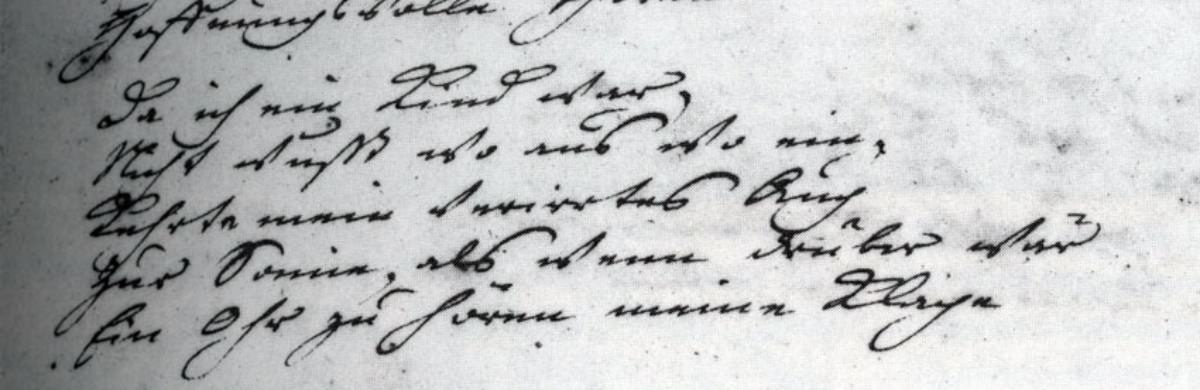 Hoffnungsvolle
Da ich ein Kind war,
Nicht wußt wo aus wo ein,
Kehrte mein verirrtes Aug
Zur Sonne, als wenn drüber wär
Ein Ohr zu hören meine Klage